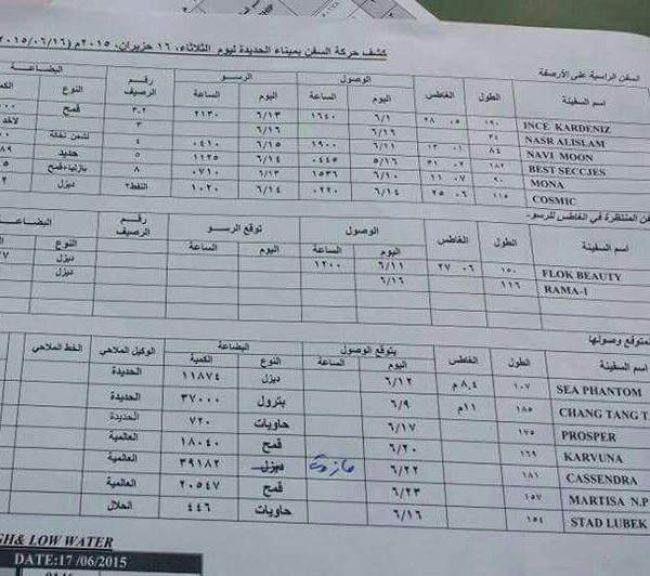 كشف حركة السفن بميناء الحديدة ليوم الثلاثاء، ١٦ حزيران، ٢٠١٥م (٢٠١٥/٠٦/١٦
السفن الراسية على الأرصفة
اسم السفينة الطول الغاطس الوصول الرسو رقم الرصيف البضاعة
اليوم الساعة اليوم الساعة النوع
INCE KARDENIZ ١٩٠ ٠٥ ٢٨ ٦/١ ١٦٤٠ ٦/١٣ ٢١٣٠ ٣،٢ قمح
NASR ALISLAM ٣٤ ٦/١٦ ٦/١٦ ٣
NAVI MOON ٨٤ ٠١ ١٣ ١٩٠٠ ٦/١٥ ٠٤١٠ ٤ لشحن نخالة
BEST SECCJES ١٨٢ ٠٧ ٣١ ٥/١٦ ٠٤٤٥ ٦/١٤ ١١٢٥ ٥ حديد
MONA ٩٠ ٠٧ ١١ ٦/١٠ ١٥٣٦ ٦/١٣ ٠٧١٠ ٨ بازليا+قمح
COSMIC ١١٥ ٠٦ ٢٥ ٦/١٤ ٠٢٢٠ ٦/١٤ ١٠٢٠ النفط٢ ديزل
المنتظرة في الغاطس للرسو-
اسم السفينة الطول الغاطس الوصول توقع الرسو رقم الرصيف البضاعة
اليوم الساعة اليوم الساعة النوع
FLOK BEAUTY ١٥٠ ٠٦ ٢٧ ٦/١١ ١٢٠٠ ديزل
RAMA-I ١١٦ ٦/١٦ ديزل
المتوقع وصولها
اسم السفينة الطول الغاطس يتوقع الوصول البضاعة الوكيل الملاحي الخط الملاحي
اليوم الساعة النوع الكمية
SEA PHANTOM ١٠٧ ٨,٤م ٦/١٢ ديزل ١١٨٧٤ الحديدة
CHANG TANG T. ١٨٥ ١١م ٦/٩ بترول ٣٧٠٠٠ الحديدة
PROSPER ١٧٥ ٦/١٧ حاويات ٧٢٠ الحديدة
KARVUNA ١٦٩ ٦/٢٠ قمح ١٨٠٤٠ العالمية
CASSENDRA ١٨١ ٦/٢٢ مازوت ديزل ٣٩١٨٢ العالمية
MARTISA N.P ١٥٧ ٦/٢٣ قمح ٢٠٥٤٧ العالمية
STAD LUBEK ١٥٤ ٦/١٦ حاويات ٤٤٦ الحلال
GH& LOW WATER
DATE:17 /06/2015